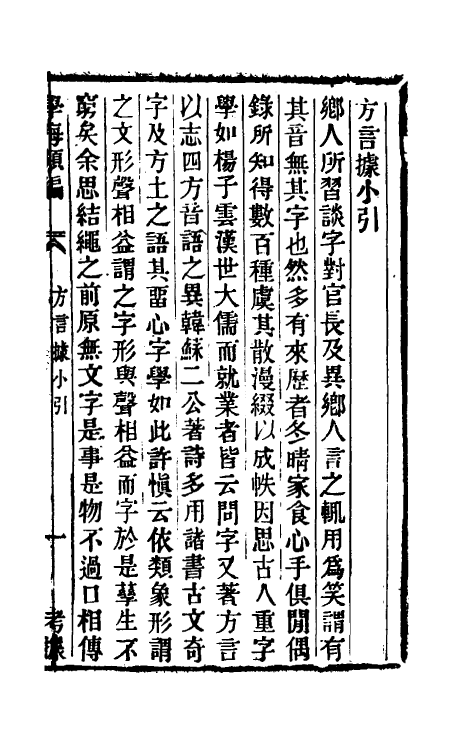 方言據小引
鄉人所習談字對官長及異鄉人言之輒用爲笑謂有
其音無其字也然多有來歷者冬晴家食心手俱閒偶
錄所知得數百種虞其散漫綴以成帙因思古人重字
學如楊子雲漢世大儒而就業者皆云問字又著方言
以志四方音語之異韓蘇二公著詩多用諸書古文奇
字及方土之語其畱心字學如此許愼云依類象形謂
之文形聲相益謂之字形與聲相益而字於是孳生不
窮矣余思結繩之前原無文字是事是物不過口相傳
學海類編
方言據小引
一
考據